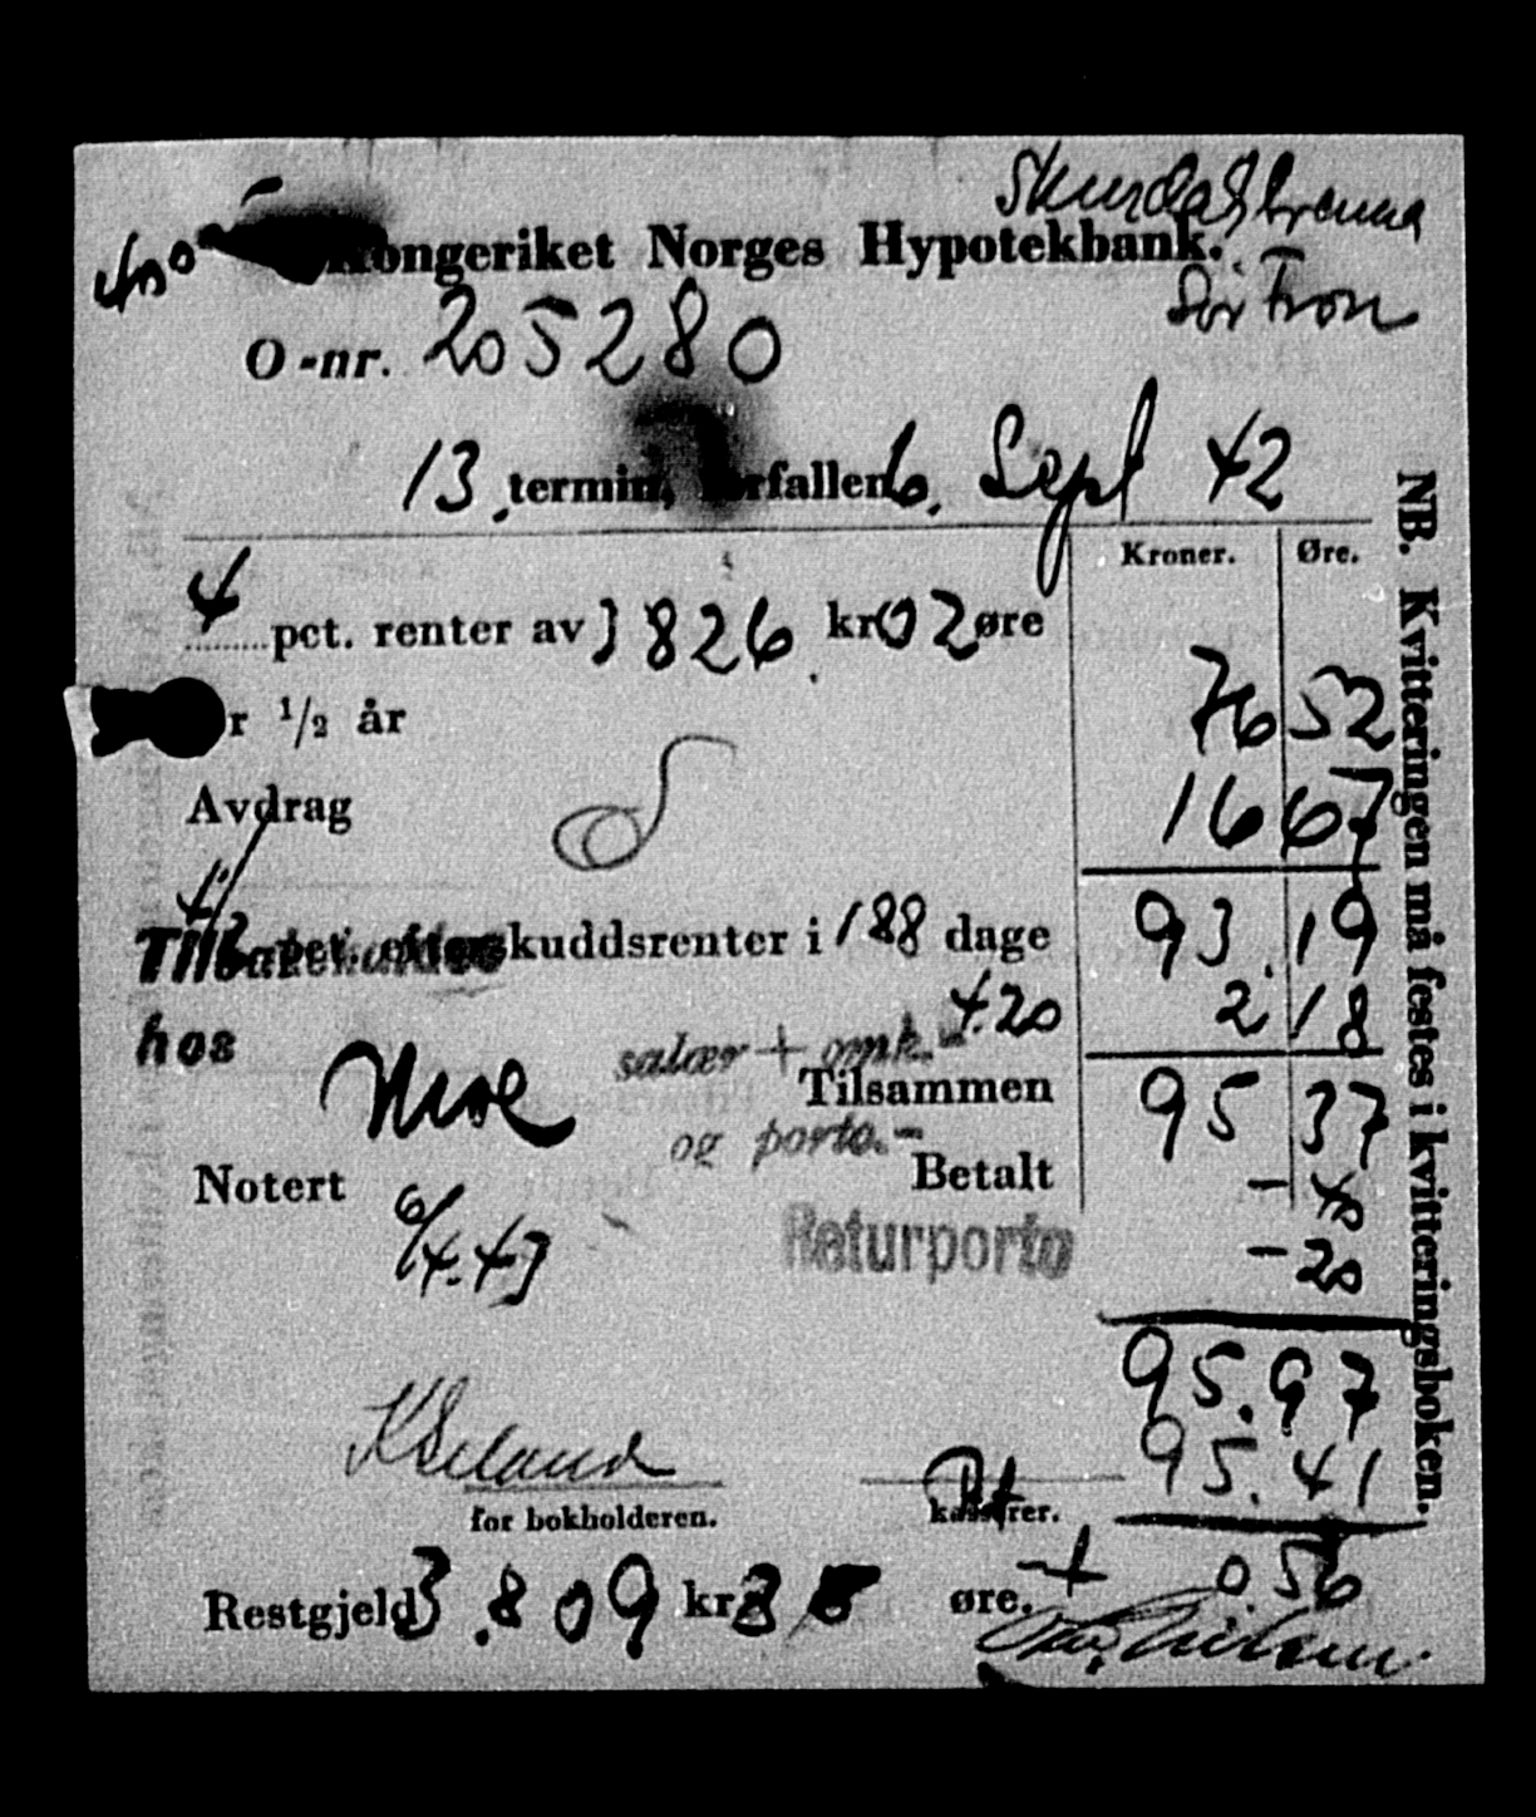 Sør Fron
Kongeriket Norges Hypotekbank.
O-nr. 205280
13. termin, forfallen 6. Sept 42
Kroner. Øre.
4 pct. renter av 3826 kr 02 øre
r 1/2 år 76 52
Avdrag 16 67
93.19
pct. efterskuddsrenter i 188 dage 2 18
Tilbakeholdes
hos
4.20
salær + omk.-
Tilsammen 95 37
og porto.-
Betalt - 40
Notert 6/4.43
Returporto - 20
95.97
95.41
for bokholderen.
kasserer.
+ 0.56
Restgjeld 3.809 kr 35 øre.
NB. Kvitteringen må festes i kvitteringsboken.